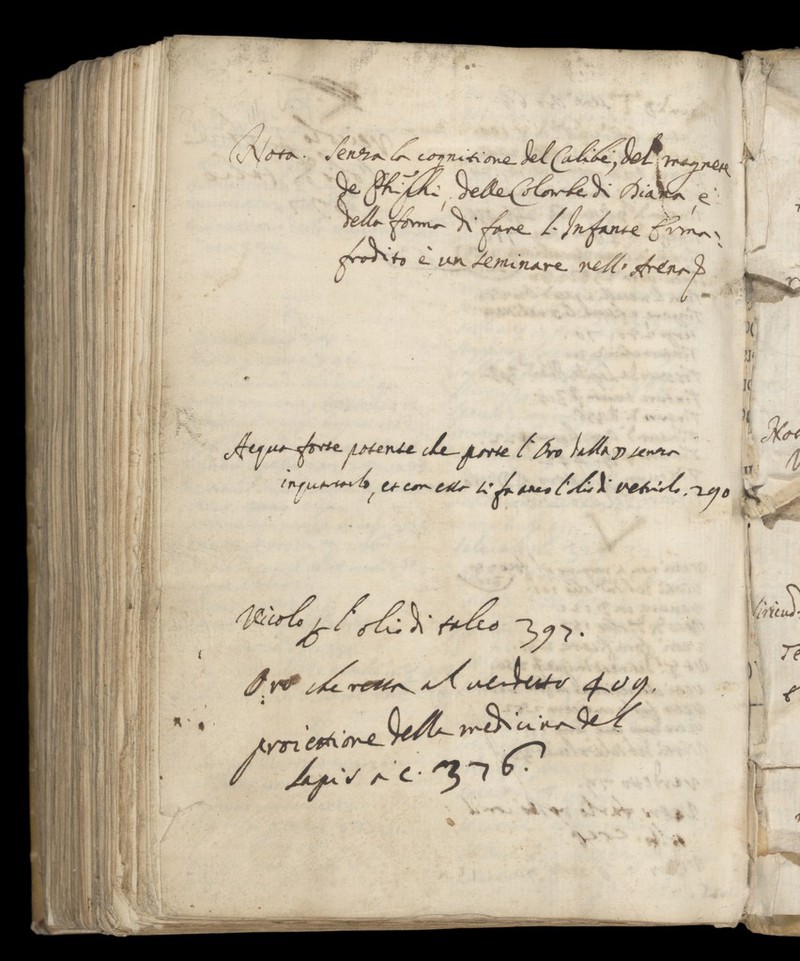 Nota. Senza la cognitione del Calibe, del magnete
de Phisici, delle Colombe di Diana, e
della forma di fare l'Infante Erma=
frodito è un seminare nell' Arena
Acqua forte potente che parte l'Oro dalla ☽ senza
inquartarlo, et con essa si fa anco l'olio di vetriolo. 290
Vicolo p l'olio di talco 397.
Oro che resta al verdetto 409.
proiettione della medicina del
Lapis à c. 376.